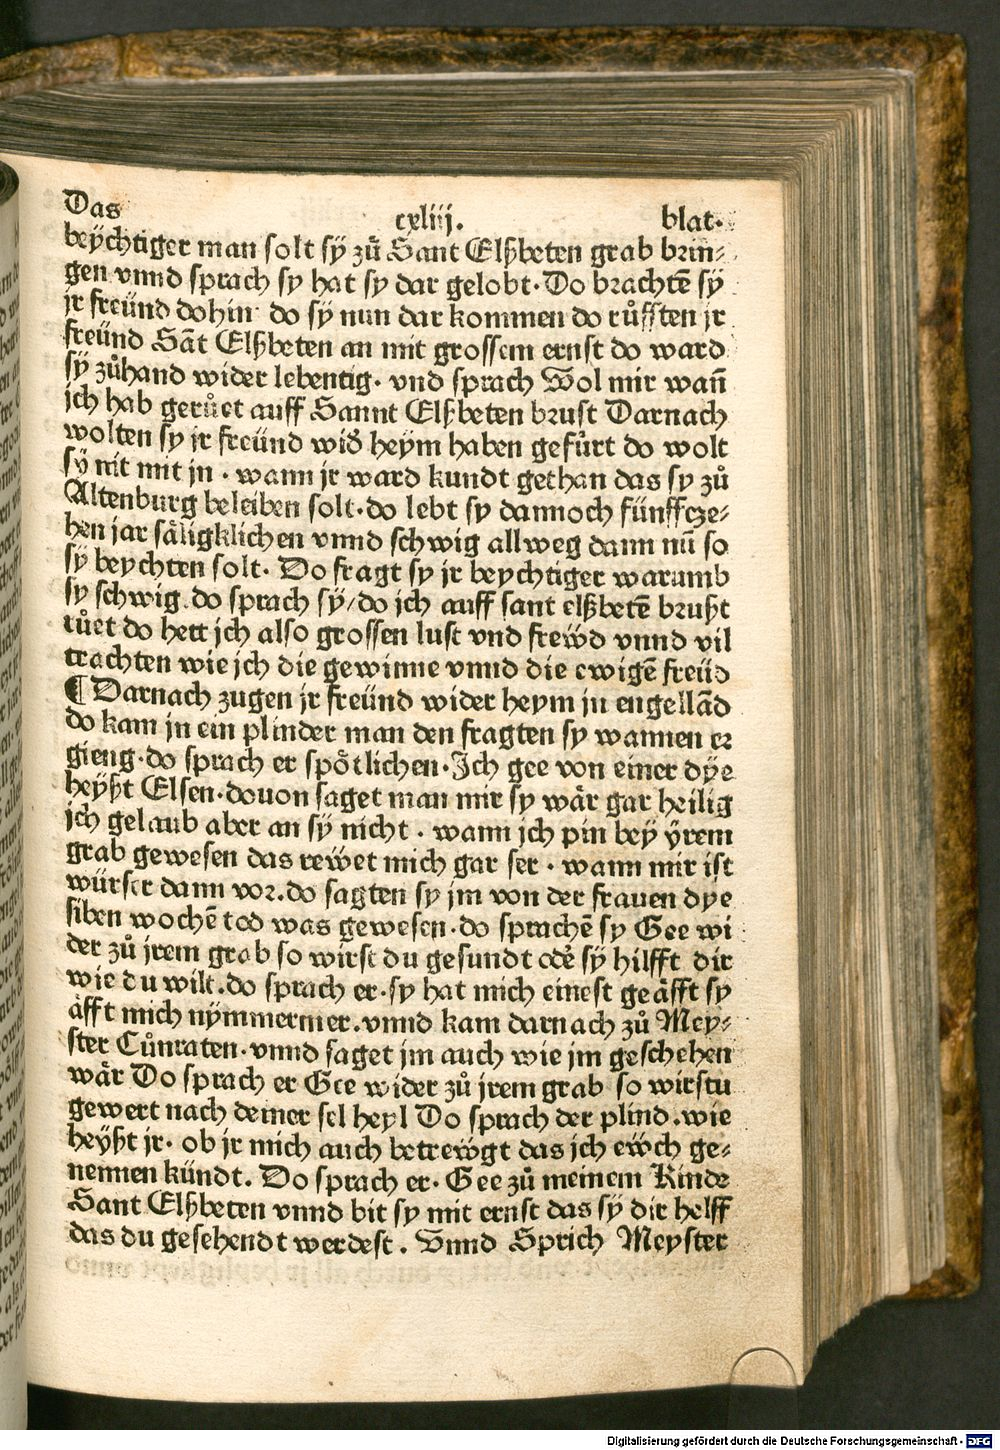 Das cxliij. blat.
beÿchtiger man solt sÿ zů Sant Elßbeten grab brin⸗
gen vnnd sprach sy hat sy dar gelobt. Do brachtē sÿ
jr freünd dohin do sÿ nun dar kommen do růfften jr
freünd Sāt Elßbeten an mit grossem ernst do ward
sÿ zůhand wider lebentig. vnd sprach Wol mir wañ
jch hab gerůet auff Sannt Elßbeten brust Darnach
wolten sy jr freünd wid̄ heÿm haben gefůrt do wolt
sÿ nit mit jn. wann jr ward kundt gethan das sy zů
Altenburg beleiben solt. do lebt sy dannoch fünffcze⸗
hen jar säligklichen vnnd schwig allweg dann nū so
sÿ beychten solt. Do fragt sy jr beychtiger warumb
sy schwig. do sprach sÿ/do jch auff sant elßbetē brußt
růet do hett jch also grossen lust vnd frewd vnnd vil
trachten wie jch die gewinne vnnd die ewigē freüd
¶ Darnach zugen jr freünd wider heym in engellād
do kam jn ein plinder man den fragten sy wannen er
gieng. do sprach er spötlichen. Ich gee von einer dÿe
heÿßt Elsen. douon saget man mir sy wär gar heilig
jch gelaub aber an sÿ nicht. wann jch pin bey ÿrem
grab gewesen das rewet mich gar ser. wann mir ist
würser dann vor. do sagten sy jm von der frauen dye
siben wochē tod was gewesen. do sprachē sy Gee wi
der zů jrem grab so wirst du gesundt odē sÿ hilfft dir
wie du wilt. do sprach er. sy hat mich einest geäfft sy
äfft mich nÿmmermer. vnnd kam darnach zů Mey⸗
ster Cůnraten. vnnd saget jm auch wie jm geschehen
wär Do sprach er Gee wider zů jrem grab so wirstu
gewert nach deiner sel heyl Do sprach der plind. wie
heÿßt jr. ob jr mich auch betrewgt das jch ewch ge⸗
nennen kündt. Do sprach er. Gee zů meinem Kinde
Sant Elßbeten vnnd bit sy mit ernst das sÿ dir helff
das du gesehendt werdest. Vnnd Sprich Meyster
Digitalisierung gefördert durch die Deutsche Forschungsgemeinschaft - DFG